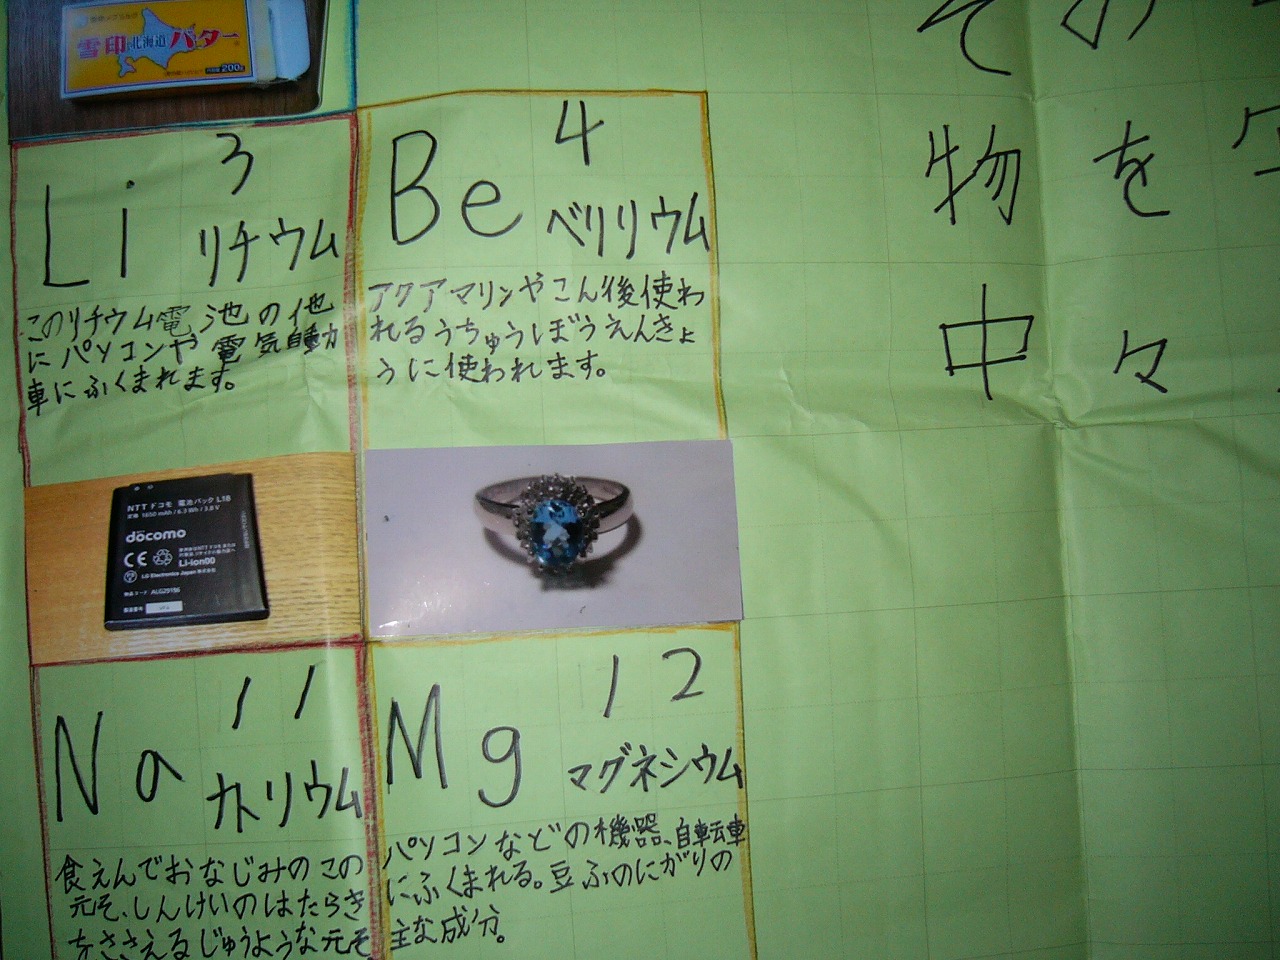 雪印北海道バター
200g
3
Li リチウム
このリチウム電池の他
にパソコンや電気自動
車にふくまれます。
NTT ドコモ 電池パック L18
docomo
CE
Li-ion00
LG Electronics Japan 株式会社
4
Be ベリリウム
アクアマリンやこん後使わ
れるうちゅうぼうえんきょ
うに使われます。
11
Na ナトリウム
食えんでおなじみのこの
元そ、しんけいのはたらき
をささえるじゅうような元そ
12
Mg マグネシウム
パソコンなどの機器、自転車
にふくまれる。豆ふのにがりの
主な成分。
その
物を
中々